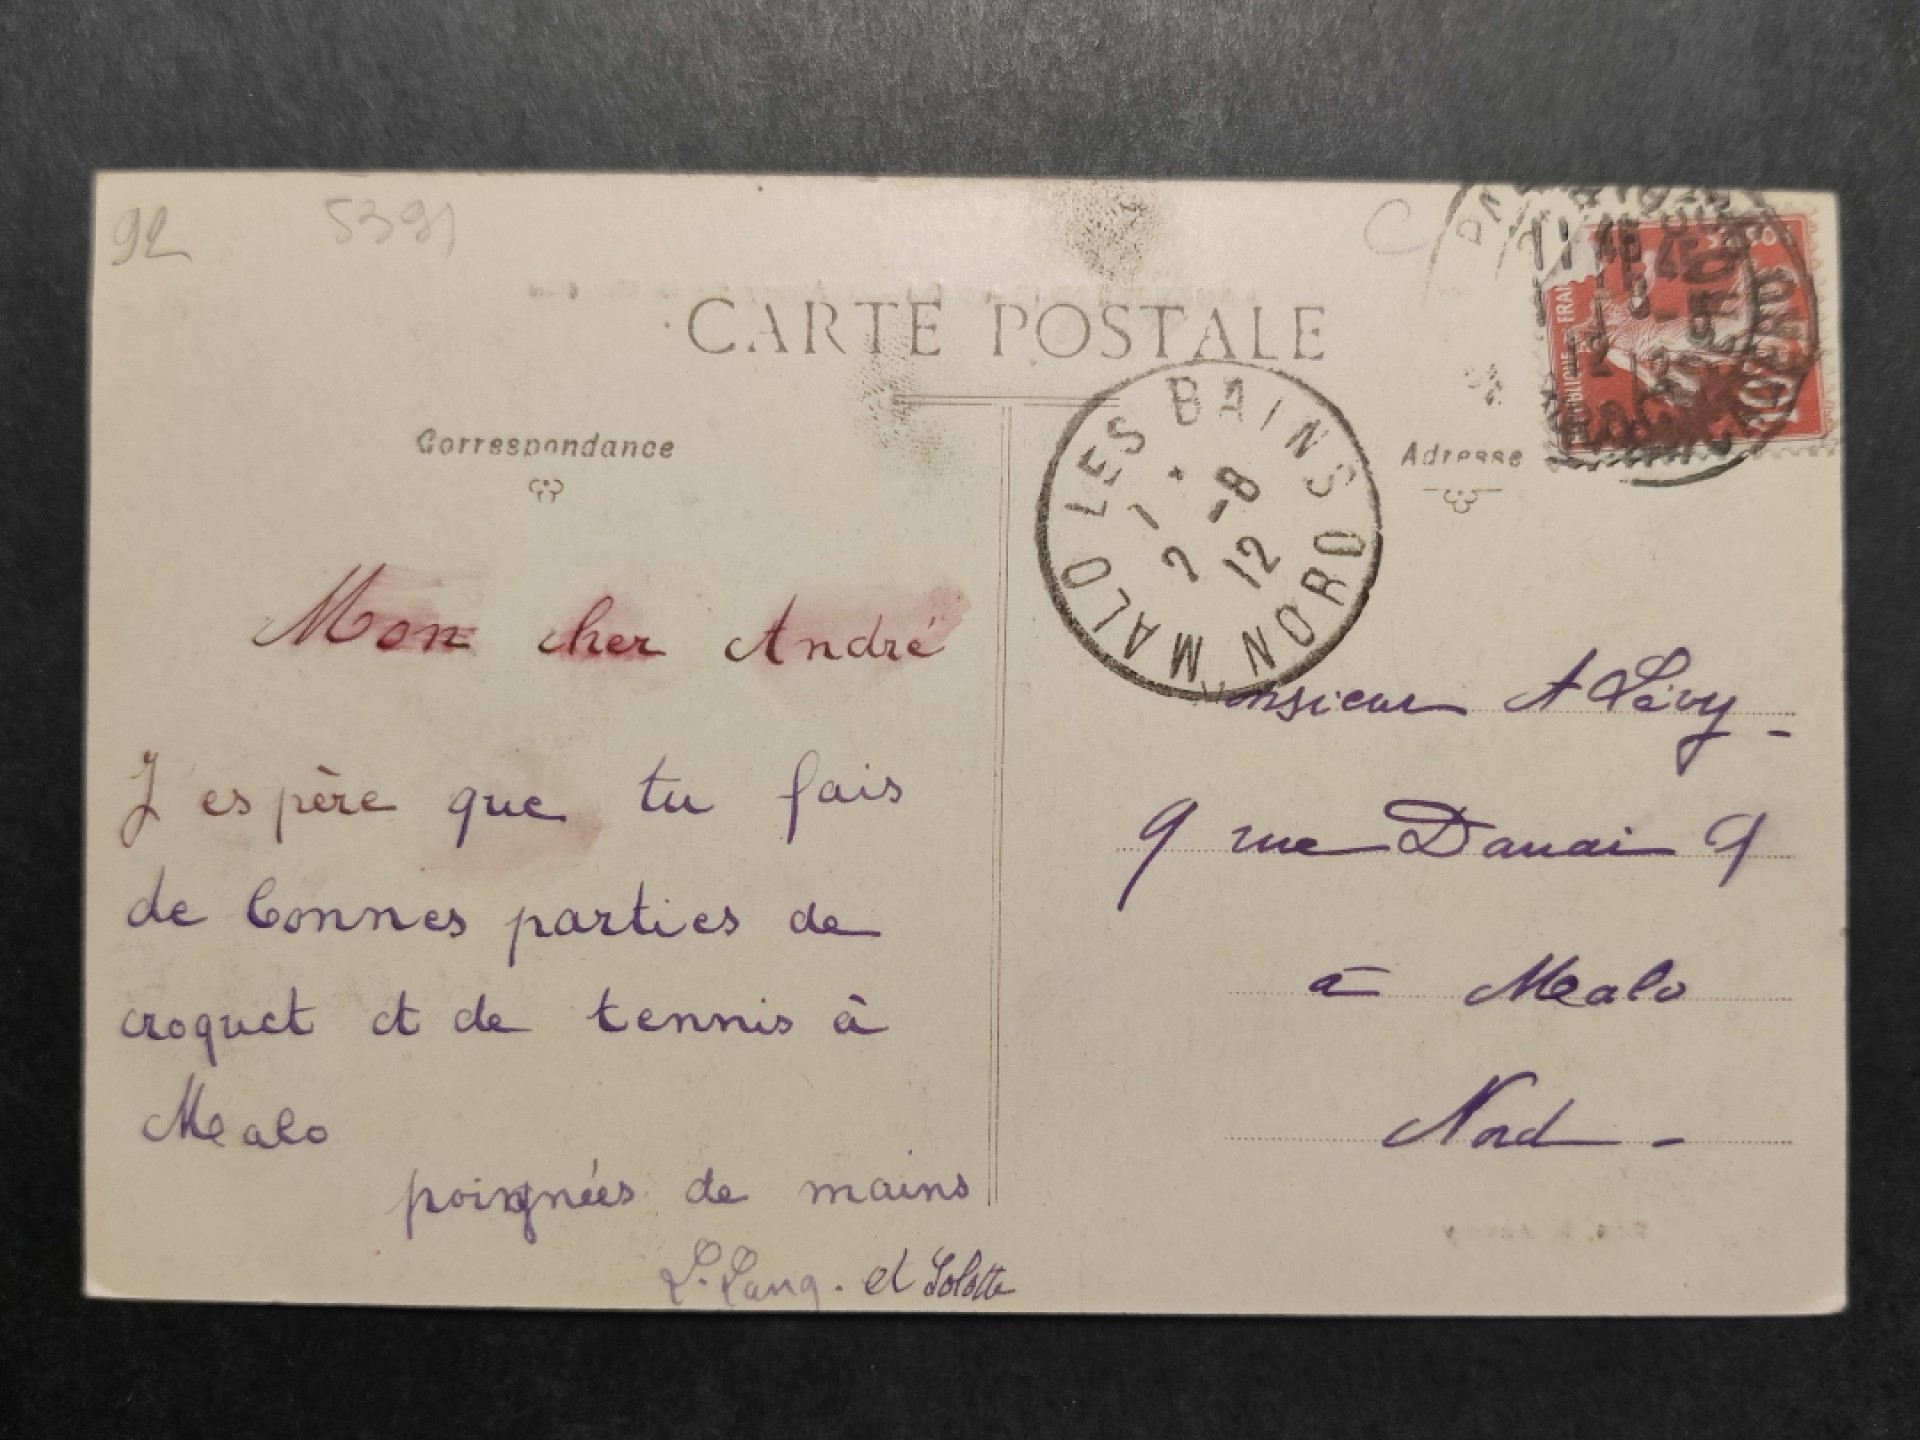 92 5391 C
CARTE POSTALE
Correspondance
Adresse
RÉPUBLIQUE FRAN
10
MALO LES BAINS
NORD
1 * 2 -8 12
Mon cher André
J'espère que tu fais
de bonnes parties de
croquet et de tennis à
Malo
poignées de mains
L. Lang. et Lolotte
Monsieur A Lévy -
9 rue Dauai 9
à Malo
Nord -